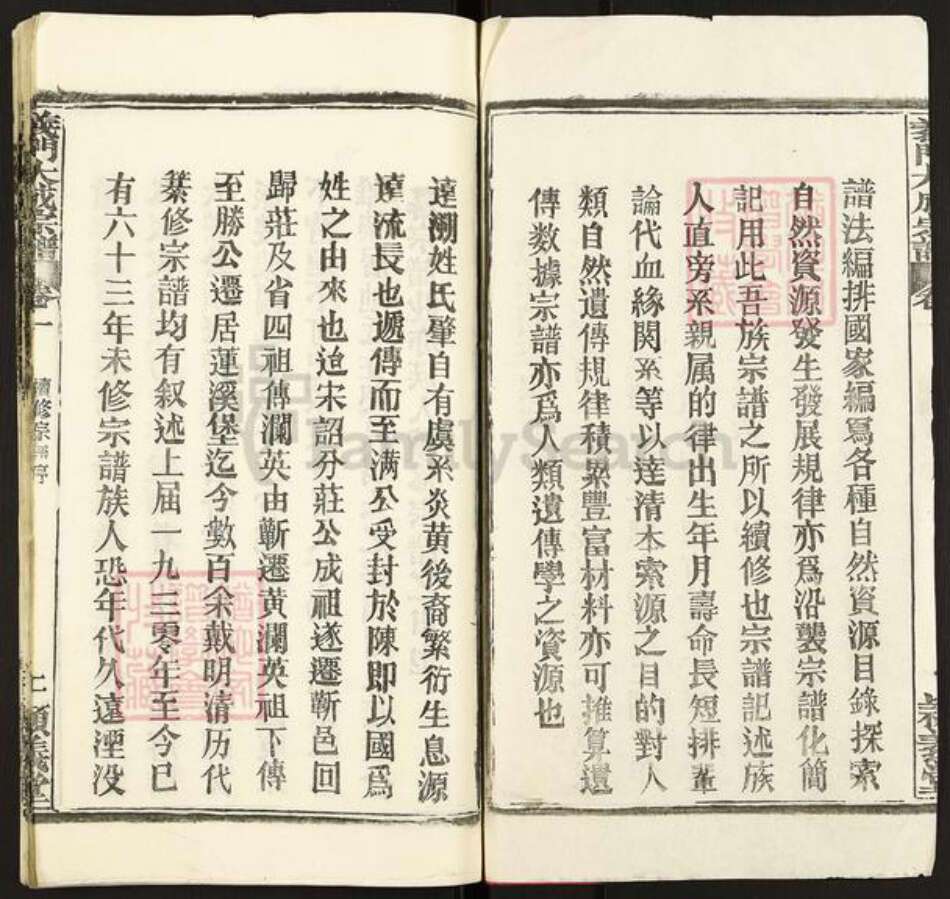 譜法編排國家編寫各種自然資源目錄探索
自然資源發生發展規律亦爲沿襲宗譜化簡
記用此吾族宗譜之所以續修也宗譜記述族
人直旁系親属的律出生年月壽命長短排輩
論代血緣関系等以達清本索源之目的對人
類自然遺傳規律積累豐富材料亦可推算遺
傳数據宗譜亦爲人類遺傳學之資源也
遠溯姓氏肇自有虞系炎黄後裔繁衍生息源
遠流長也遞傳而至满公受封於陳即以國爲
姓之由來也迨宋詔分莊公成祖遂遷蘄邑回
歸莊及省四祖傳瀾英由蘄遷黄瀾英祖下傳
至勝公遷居蓮溪堡迄今數百余載明清历代
纂修宗譜均有叙述上届一九三零年至今已
有六十三年未修宗譜族人恐年代久遠湮没
義門大成宗譜 卷一 續修宗譜序
FamilySearch